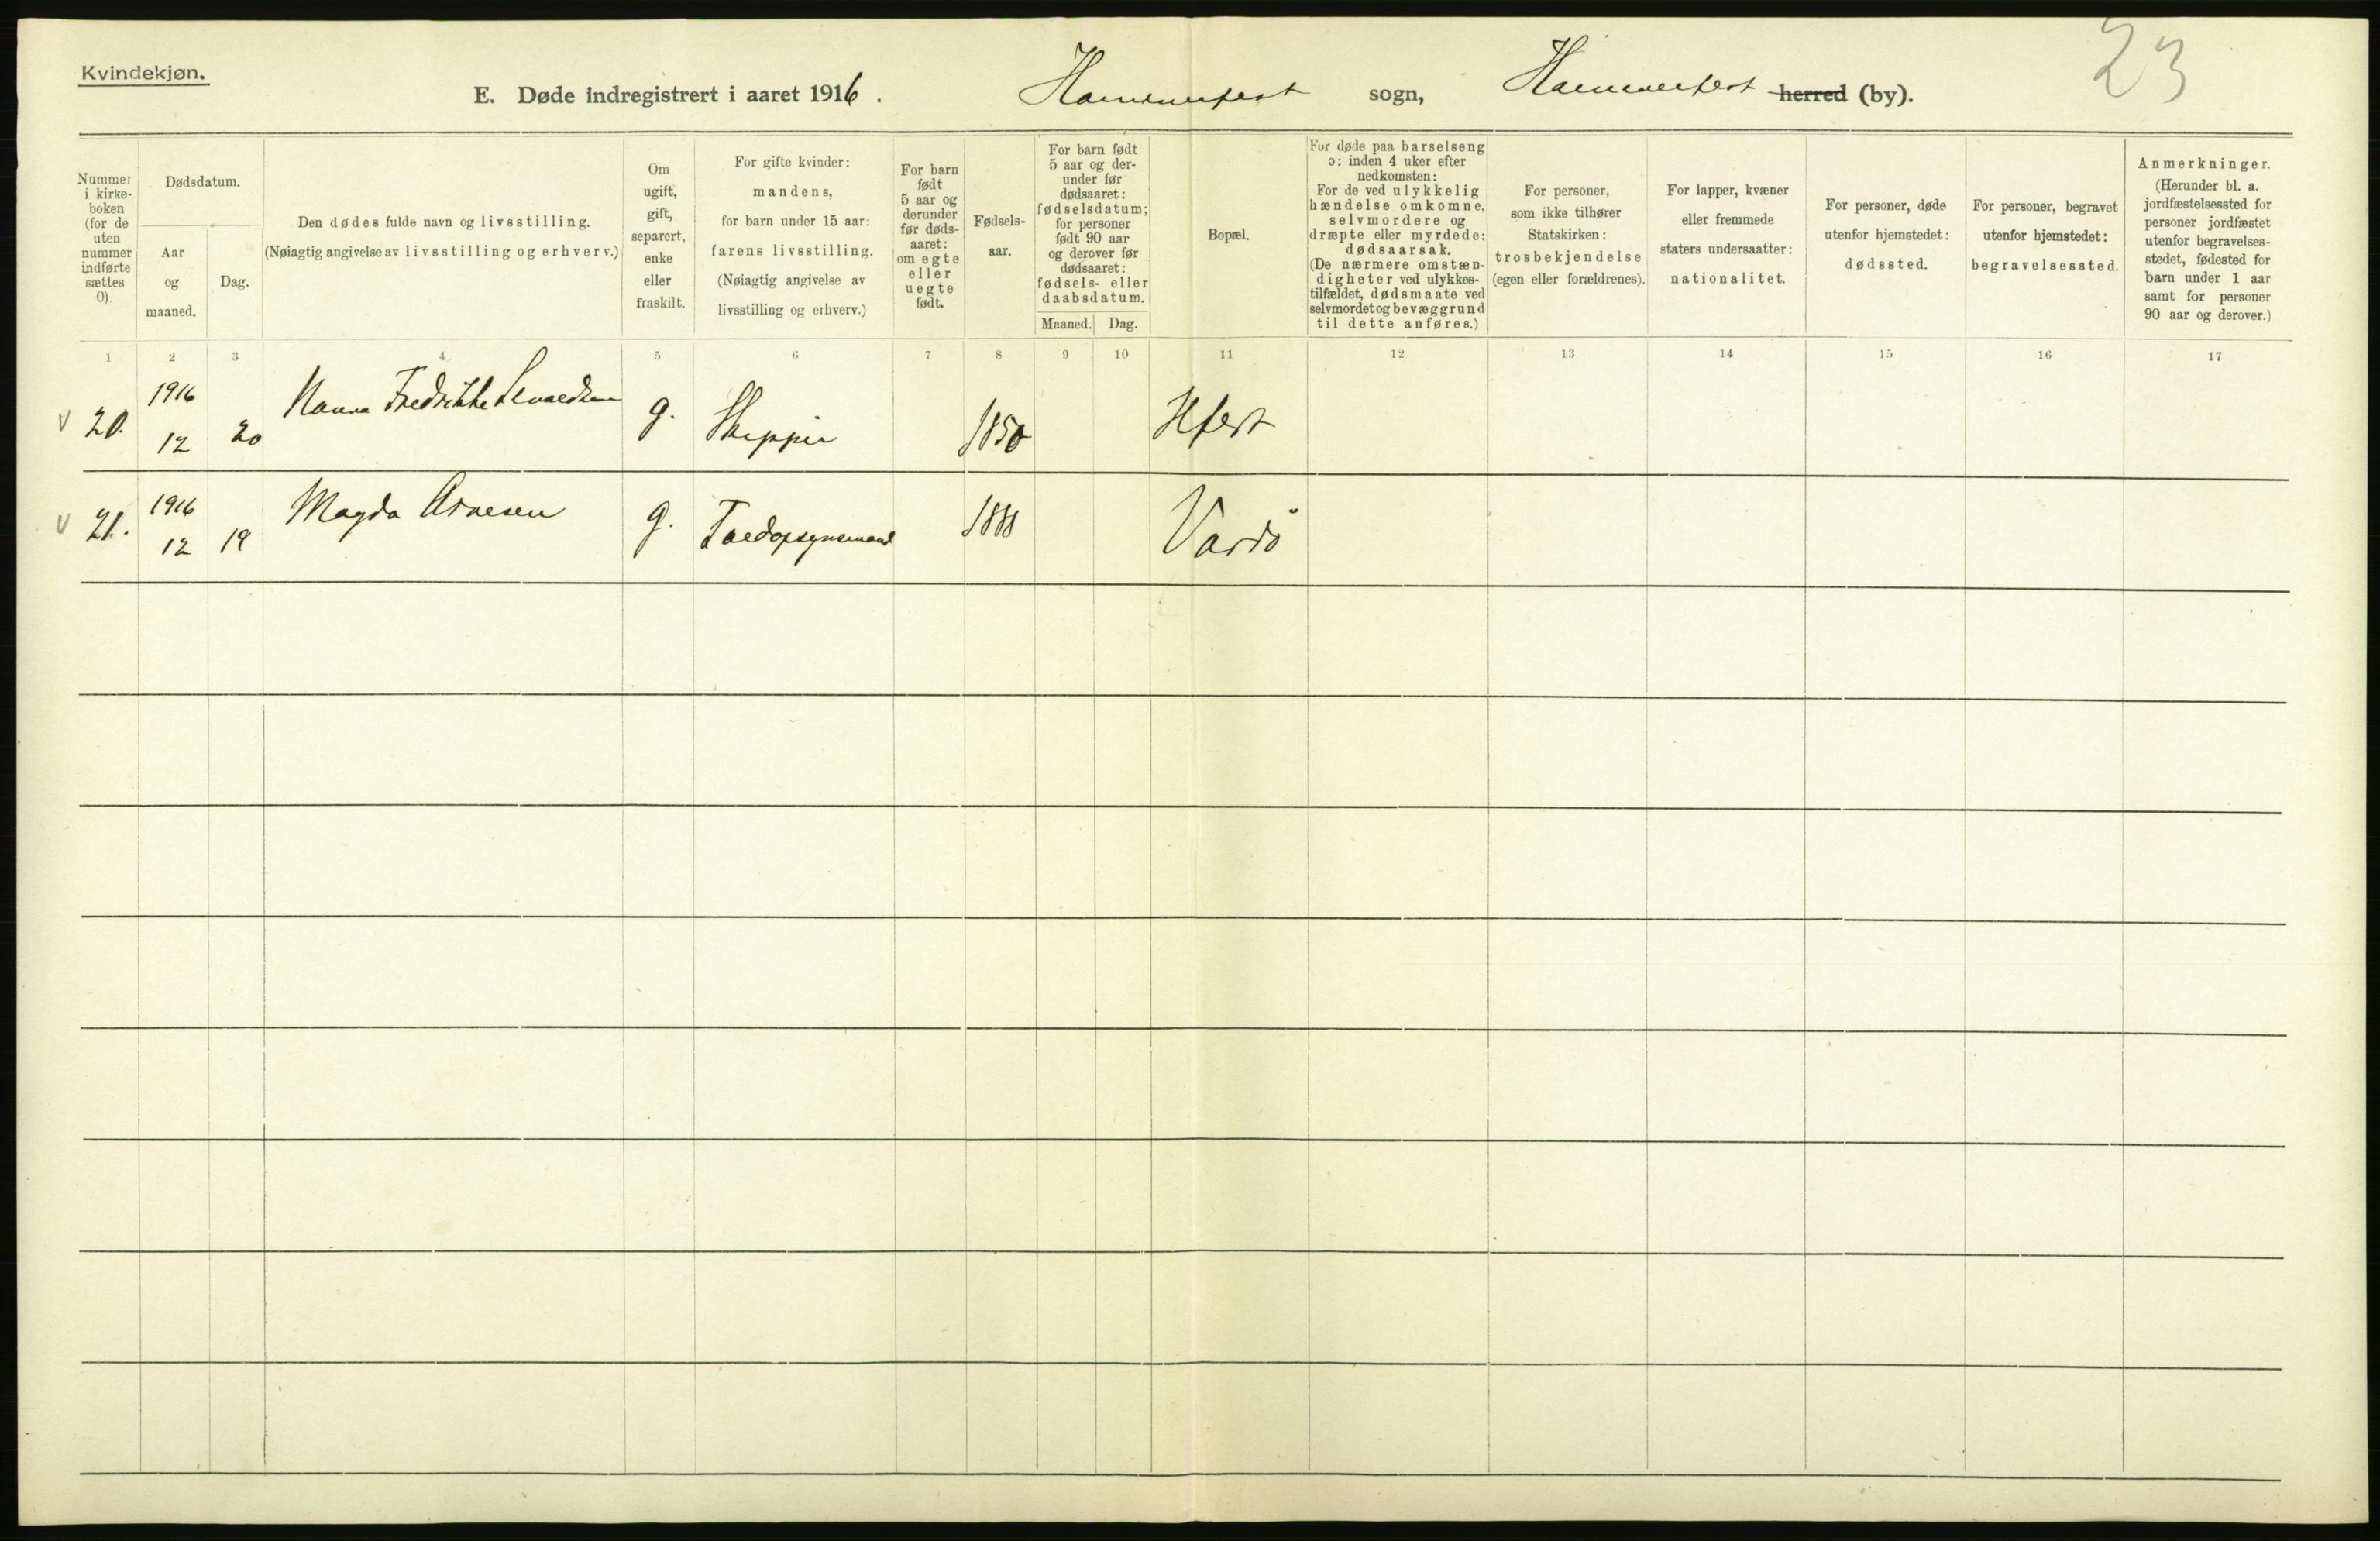 Kvindekjøn.
23
E. Døde indregistrert i aaret 1916. Hammerfest sogn, Hammerfest herred (by).
Nummer i kirke-
boken
(for de
uten
nummer
indførte
sættes
0).
Dødsdatum.
Aar
og
maaned.
Dag.
Den dødes fulde navn og livsstilling.
(Nøiagtig angivelse av livsstilling og erhverv.)
Om
ugift,
gift,
separert,
enke
eller
fraskilt.
For gifte kvinder:
mandens,
for barn under 15 aar:
farens livsstilling.
(Nøiagtig angivelse av
livsstilling og erhverv.)
For barn
født
5 aar og
derunder
før døds-
aaret:
om egte
eller
uegte
født.
Fødsels-
aar.
For barn født
5 aar og der-
under før
dødsaaret:
fødselsdatum;
for personer
født 90 aar
og derover før
dødsaaret:
fødsels- eller
daabsdatum.
Maaned. Dag.
Bopæl.
For døde paa barselseng
ɔ: inden 4 uker efter
nedkomsten:
For de ved ulykkelig
hændelse omkomne,
selvmordere og
dræpte eller myrdede:
dødsaarsak.
(De nærmere omstæn-
digheter ved ulykkes-
tilfældet, dødsmaate ved
selvmordet og bevæggrund
til dette anføres.)
For personer,
som ikke tilhører
Statskirken:
trosbekjendelse
(egen eller forældrenes).
For lapper, kvæner
eller fremmede
staters undersaatter:
nationalitet.
For personer, døde
utenfor hjemstedet:
dødssted.
For personer, begravet
utenfor hjemstedet:
begravelsessted.
Anmerkninger.
(Herunder bl. a.
jordfæstelsessted for
personer jordfæstet
utenfor begravelses-
stedet, fødested for
barn under 1 aar
samt for personer
90 aar og derover.)
1 2 3 4 5 6 7 8 9 10 11 12 13 14 15 16 17
v 20. 1916 12 20 Fredrikke g. Skipper 1850 Hfest
v 21. 1916 12 19 Magda Arnesen g. 1888 Vardö